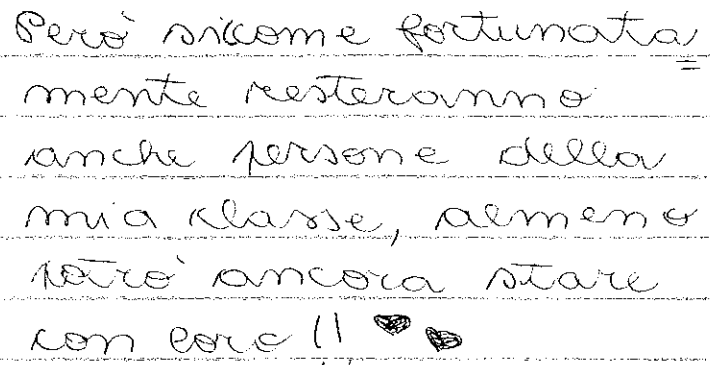 Però sicome fortunata=
mente resteranno
anche persone della
mia classe, almeno
potrò ancora stare
con loro!! ♥♥